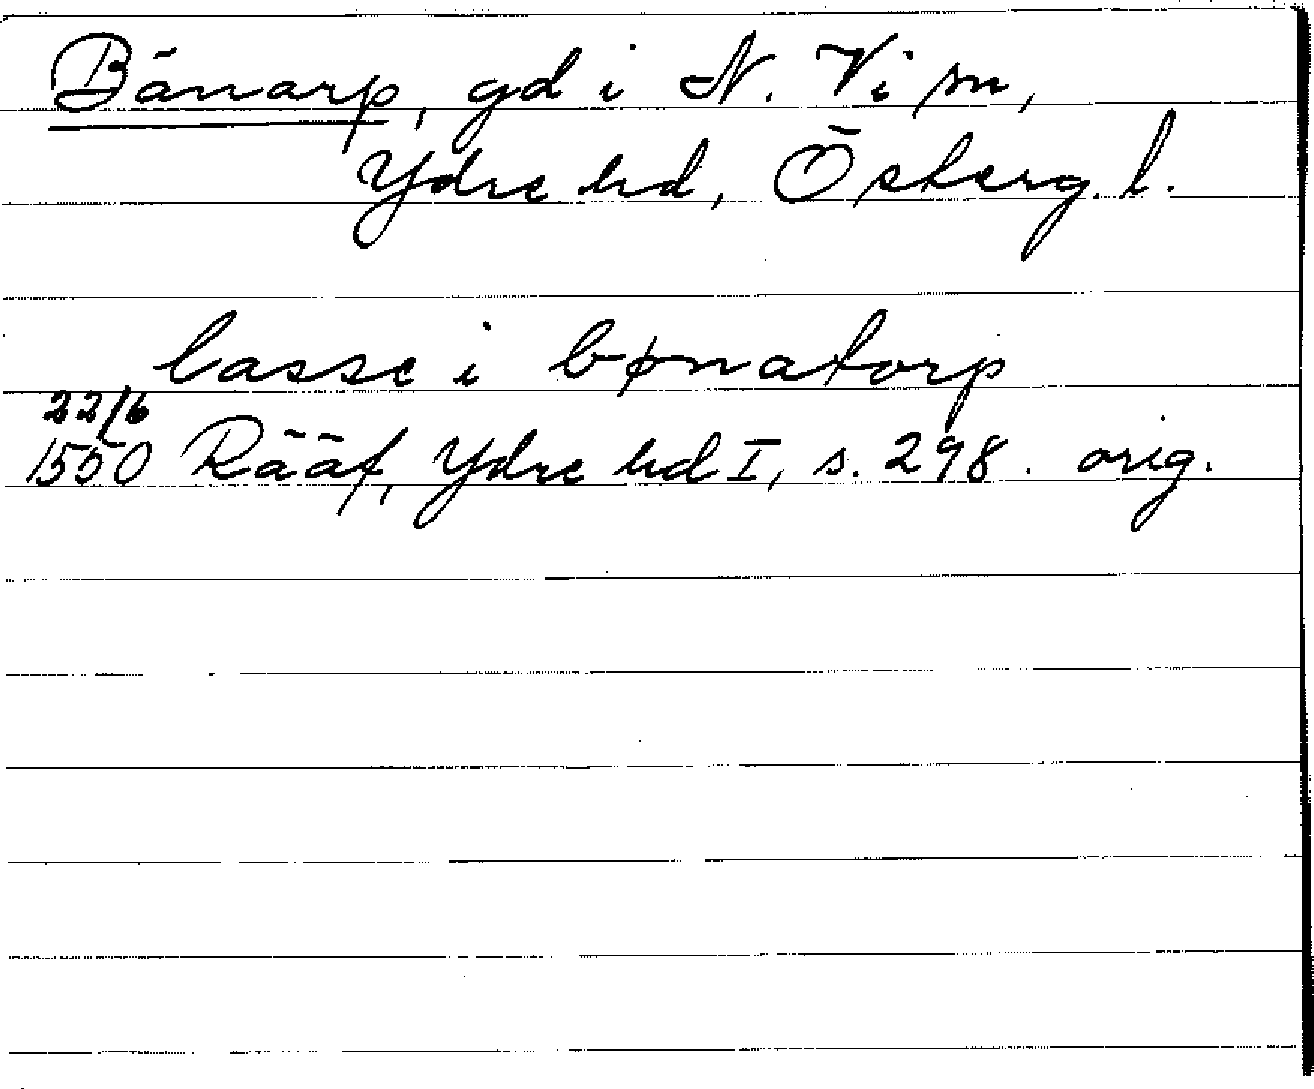 Bänarp, gd i N. Vi sn,
Ydre hd, Österg. l.
lasse i bønatorp
22/6
1550 Rääf, Ydre hd I, s. 298. orig.